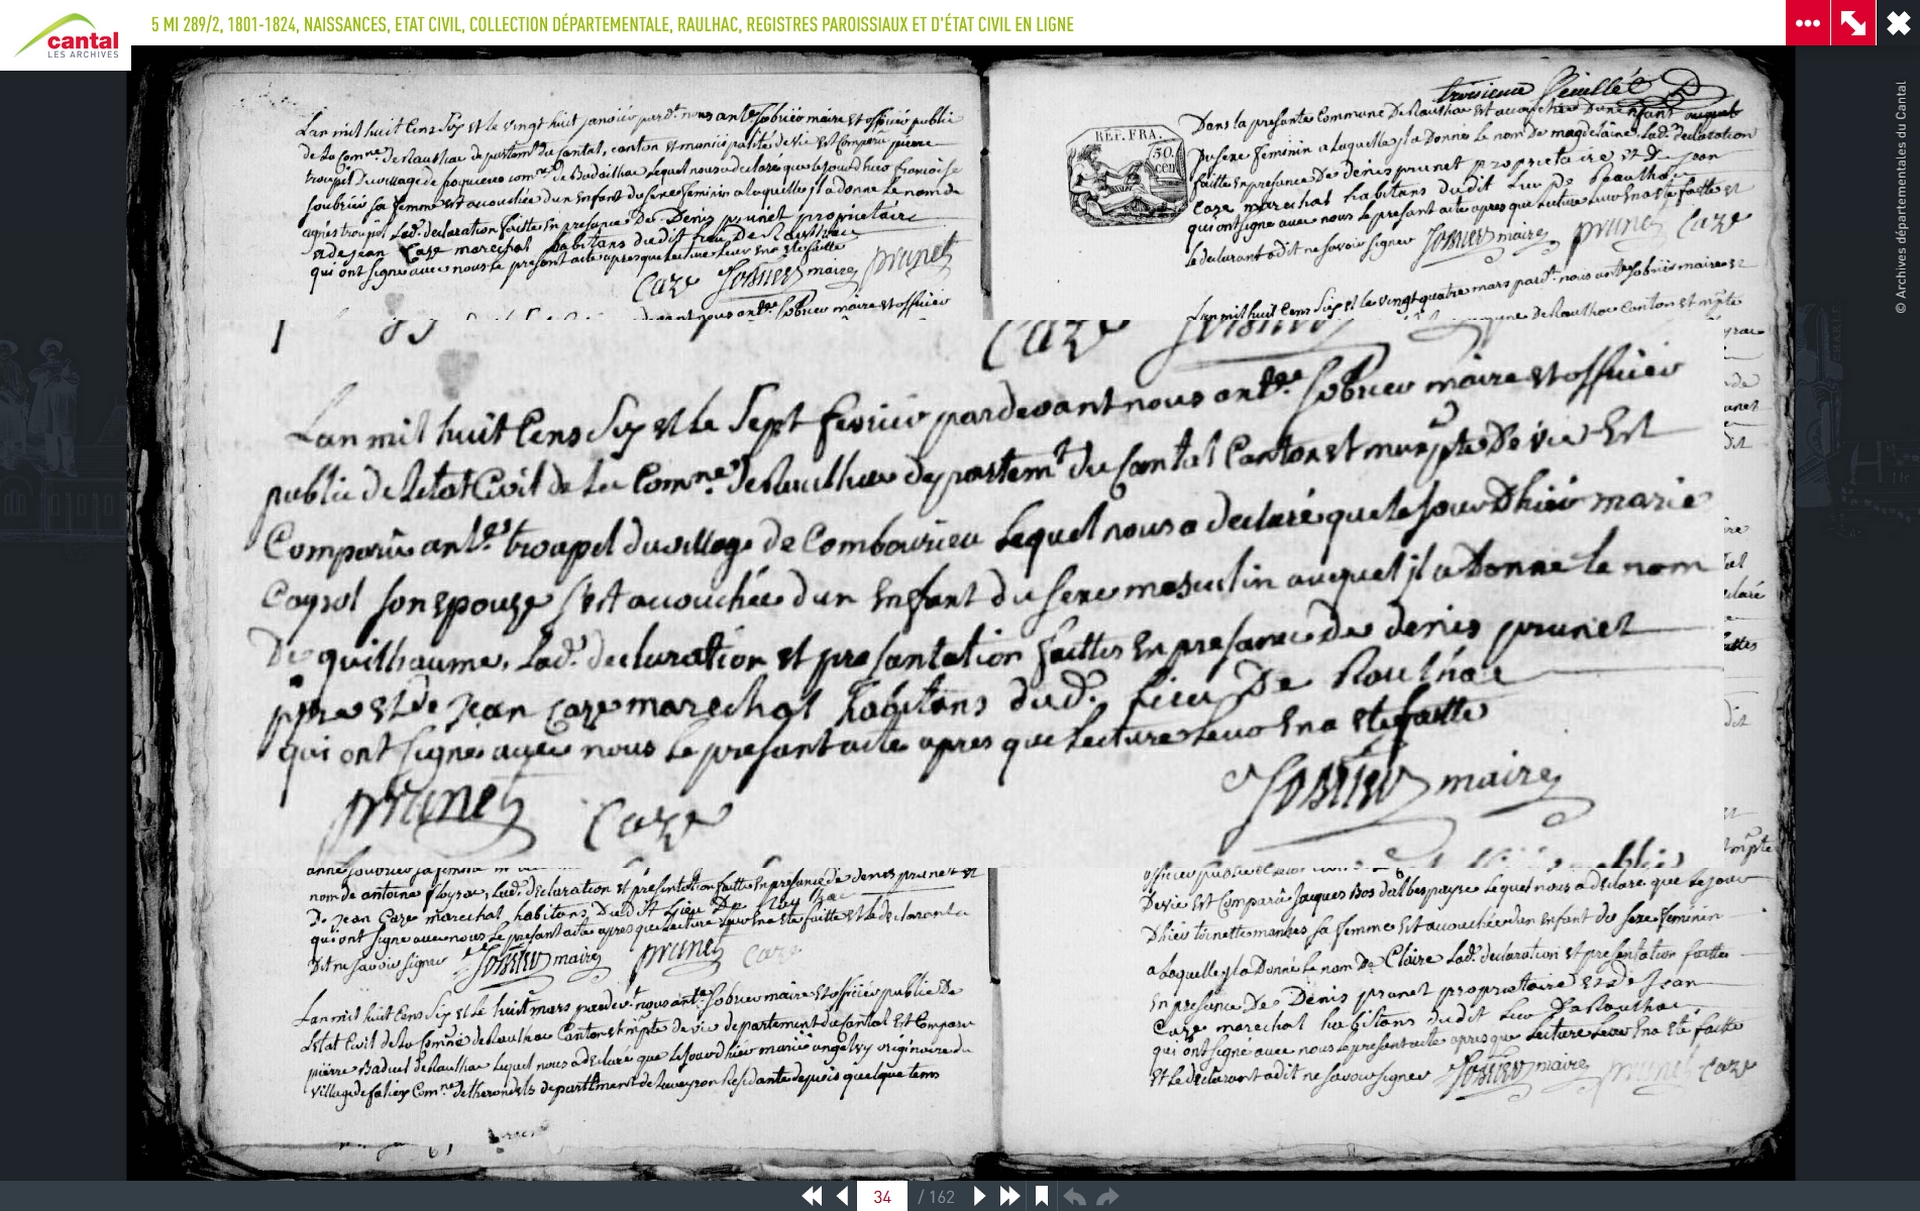 5 MI 289/2, 1801-1824, NAISSANCES, ETAT CIVIL, COLLECTION DÉPARTEMENTALE, RAULHAC, REGISTRES PAROISSIAUX ET D'ÉTAT CIVIL EN LIGNE
cantal
LES ARCHIVES
© Archives départementales du Cantal
Lan mil huit Cens Six et le vingt huit janvier pard.t nous ant.e Sobrier maire et officier public
de la Com.ne de Raulhac departem.t du Cantal, canton et municipalité de vic est Comparu pierre
troupel du village de com.ne de Badailhac lequel nous a declaré que le jour dhier francoise
Soubrier sa femme est accouchée dun Enfant du sexe feminin a laquelle il a donné le nom de
agnès troupel Lad. declaration faitte En presance De Denis prunet propriétaire
et de jean Caze marechal habitans dudit lieu De Raulhac
qui ont signé avec nous le presant acte apres que lecture leur En a ete faitte
Caze Sobrier maire prunet
nous ant.e Sobrier maire et officier
troisieme feuillet
REP. FRA.
50 cen
Dans la presante Commune De Raulhac est accouchée Dun enfant
Du sexe feminin a laquelle il a Donné le nom De magdelaine, Lad. declaration
faitte En presance De denis prunet proprietaire et De jean
Caze marechal habitans dudit Lieu De Raulhac
qui ont signé avec nous le presant acte apres que lecture leur En a ete faitte et
le declarant a dit ne savoir signer Sobrier maire prunet Caze
Lan mil huit Cens Six et le vingt quatre mars pard.t nous ant.e Sobrier maire et
Lan mil huit Cens Six et le Sept fevrier pardevant nous ant.e Sobrier maire et officier
public de letat Civil de la Com.ne de Raulhac departem.t du Cantal Canton et mun.pte De vic Est
Comparu ant.e troupel du village de Combourieu Lequel nous a declaré que le jour Dhier marie
Cayrol son epouze s'est accouchée dun Enfant du sexe masculin auquel il a Donné le nom
De guilhaume, Lad. declaration et presantation faittes En presance de denis prunet
ppre et de Jean Caze marechal habitans dud. Lieu De Raulhac
qui ont signé avec nous le presant acte apres que lecture leur En a ete faitte
Sobrier maire
prunet Caze
nom de antoine Lad. declaration et presentation faitte En presance de denis prunet et
De jean Caze marechal habitans Dudit Lieu De Raulhac
qui ont signé avec nous le presant acte apres que lecture leur En a ete faitte et le declarant a
Dit ne savoir signer Sobrier maire prunet Caze
Lan mil huit Cens Six et le huit mars pardev.t nous ant.e Sobrier maire et officier public De
Letat Civil de la Com.ne de Raulhac Canton et m.pte de vic departement du Cantal Est Comparu
pierre Baduel de Raulhac lequel nous a declaré que le jour dhier marie originaire du
village de Com.ne de therondels departement de laveyron Residante depuis quelque tems
De vic Est Comparu Jacques Bos lequel nous a declaré que le jour
Dhier toinette sa femme Est accouchée dun Enfant du sexe feminin
a laquelle il a Donné le nom De Claire Lad. declaration et presentation faittes
En presance De Denis prunet propriétaire et de Jean
Caze marechal habitans dudit Lieu De Raulhac
qui ont signé avec nous le presant acte apres que lecture leur En a eté faitte
et le declarant a dit ne savoir signer Sobrier maire prunet Caze
34 / 162